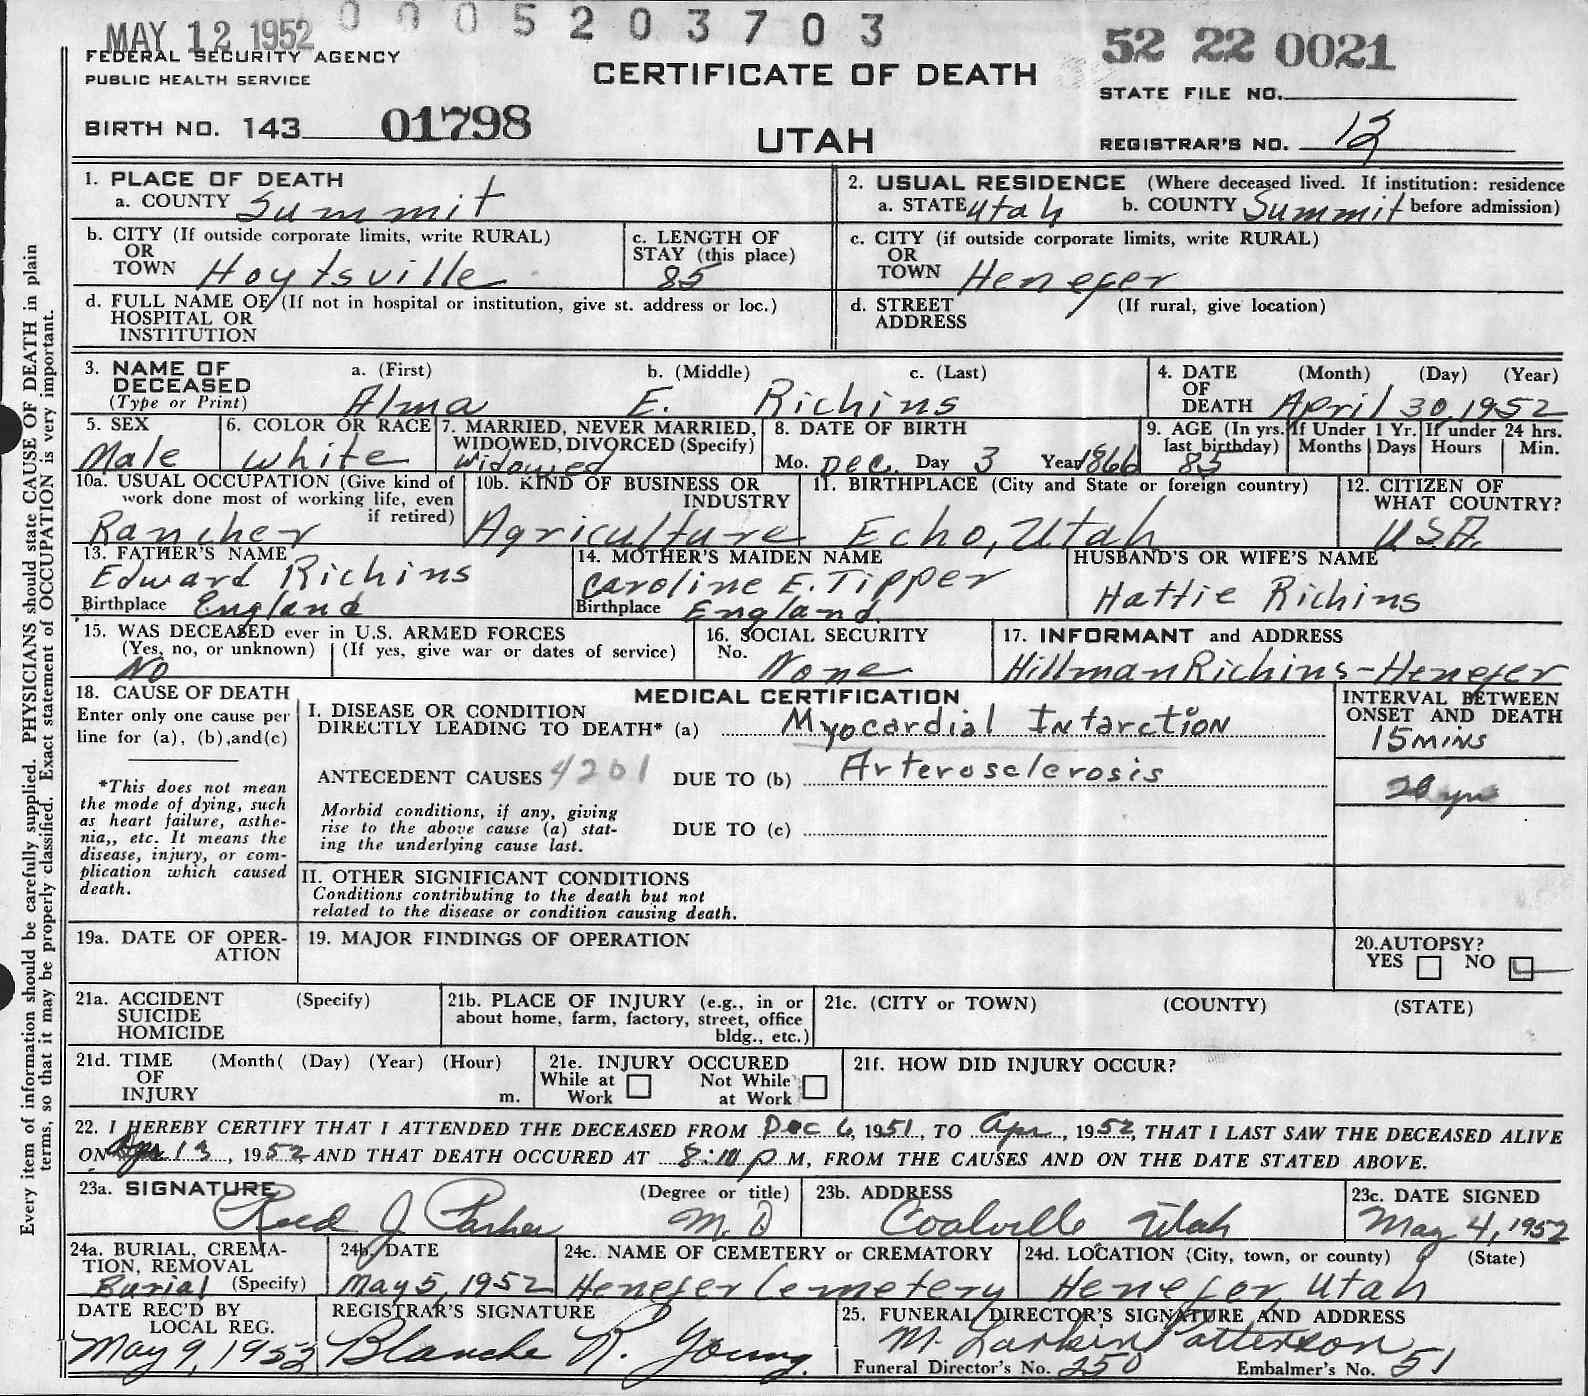 0005203703
MAY 12 1952
52 22 0021
FEDERAL SECURITY AGENCY
PUBLIC HEALTH SERVICE
CERTIFICATE OF DEATH
STATE FILE NO.
BIRTH NO. 143 01798
UTAH
REGISTRAR'S NO. 12
Every item of information should be carefully supplied. PHYSICIANS should state CAUSE OF DEATH in plain
terms, so that it may be properly classified. Exact statement of OCCUPATION is very important.
1. PLACE OF DEATH
a. COUNTY Summit
2. USUAL RESIDENCE (Where deceased lived. If institution: residence
a. STATE Utah b. COUNTY Summit before admission)
b. CITY (If outside corporate limits, write RURAL)
OR
TOWN Hoytsville
c. LENGTH OF
STAY (this place)
85
c. CITY (if outside corporate limits, write RURAL)
OR
TOWN Henefer
d. FULL NAME OF (If not in hospital or institution, give st. address or loc.)
HOSPITAL OR
INSTITUTION
d. STREET (If rural, give location)
ADDRESS
3. NAME OF a. (First) b. (Middle) c. (Last)
DECEASED
(Type or Print) Alma E. Richins
4. DATE (Month) (Day) (Year)
OF
DEATH April 30, 1952
5. SEX
Male
6. COLOR OR RACE
White
7. MARRIED, NEVER MARRIED,
WIDOWED, DIVORCED (Specify)
Widowed
8. DATE OF BIRTH
Mo. Dec. Day 3 Year 1866
9. AGE (In yrs.
last birthday)
85
If Under 1 Yr.
Months Days
If under 24 hrs.
Hours Min.
10a. USUAL OCCUPATION (Give kind of
work done most of working life, even
if retired)
Rancher
10b. KIND OF BUSINESS OR
INDUSTRY
Agriculture
11. BIRTHPLACE (City and State or foreign country)
Echo, Utah
12. CITIZEN OF
WHAT COUNTRY?
U.S.A.
13. FATHER'S NAME
Edward Richins
Birthplace England
14. MOTHER'S MAIDEN NAME
Caroline E. Tipper
Birthplace England
HUSBAND'S OR WIFE'S NAME
Hattie Richins
15. WAS DECEASED ever in U.S. ARMED FORCES
(Yes, no, or unknown) (If yes, give war or dates of service)
No
16. SOCIAL SECURITY
No.
None
17. INFORMANT and ADDRESS
Hillman Richins-Henefer
18. CAUSE OF DEATH
Enter only one cause per
line for (a), (b), and (c)
*This does not mean
the mode of dying, such
as heart failure, asthe-
nia,, etc. It means the
disease, injury, or com-
plication which caused
death.
MEDICAL CERTIFICATION
I. DISEASE OR CONDITION
DIRECTLY LEADING TO DEATH* (a) Myocardial Intarction
ANTECEDENT CAUSES 4201 DUE TO (b) Arterosclerosis
Morbid conditions, if any, giving
rise to the above cause (a) stat-
ing the underlying cause last.
DUE TO (c)
II. OTHER SIGNIFICANT CONDITIONS
Conditions contributing to the death but not
related to the disease or condition causing death.
INTERVAL BETWEEN
ONSET AND DEATH
15 MINS
20 yrs
19a. DATE OF OPER-
ATION
19. MAJOR FINDINGS OF OPERATION
20. AUTOPSY?
YES NO
21a. ACCIDENT (Specify)
SUICIDE
HOMICIDE
21b. PLACE OF INJURY (e.g., in or
about home, farm, factory, street, office
bldg., etc.)
21c. (CITY or TOWN) (COUNTY) (STATE)
21d. TIME (Month( (Day) (Year) (Hour)
OF
INJURY m.
21e. INJURY OCCURED
While at Not While
Work at Work
21f. HOW DID INJURY OCCUR?
22. I HEREBY CERTIFY THAT I ATTENDED THE DECEASED FROM Dec 6, 1951, TO Apr, 1952, THAT I LAST SAW THE DECEASED ALIVE
ON Apr 13, 1952 AND THAT DEATH OCCURED AT 8:10 P M, FROM THE CAUSES AND ON THE DATE STATED ABOVE.
23a. SIGNATURE (Degree or title)
Reed J Parker M.D
23b. ADDRESS
Coalville Utah
23c. DATE SIGNED
May 4, 1952
24a. BURIAL, CREMA-
TION, REMOVAL
Burial (Specify)
24b. DATE
May 5, 1952
24c. NAME OF CEMETERY or CREMATORY
Henefer Cemetery
24d. LOCATION (City, town, or county) (State)
Henefer, Utah
DATE REC'D BY
LOCAL REG.
May 9, 1952
REGISTRAR'S SIGNATURE
Blanche R. Young.
25. FUNERAL DIRECTOR'S SIGNATURE AND ADDRESS
M. Larkin Patterson
Funeral Director's No. 250 Embalmer's No. 51